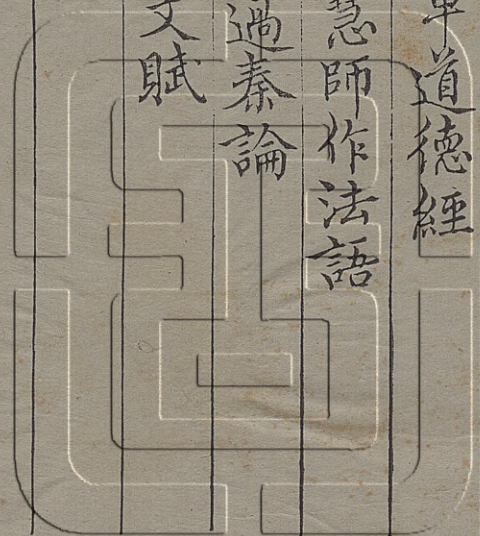 道德經
慧師作法語
過秦論
文賦